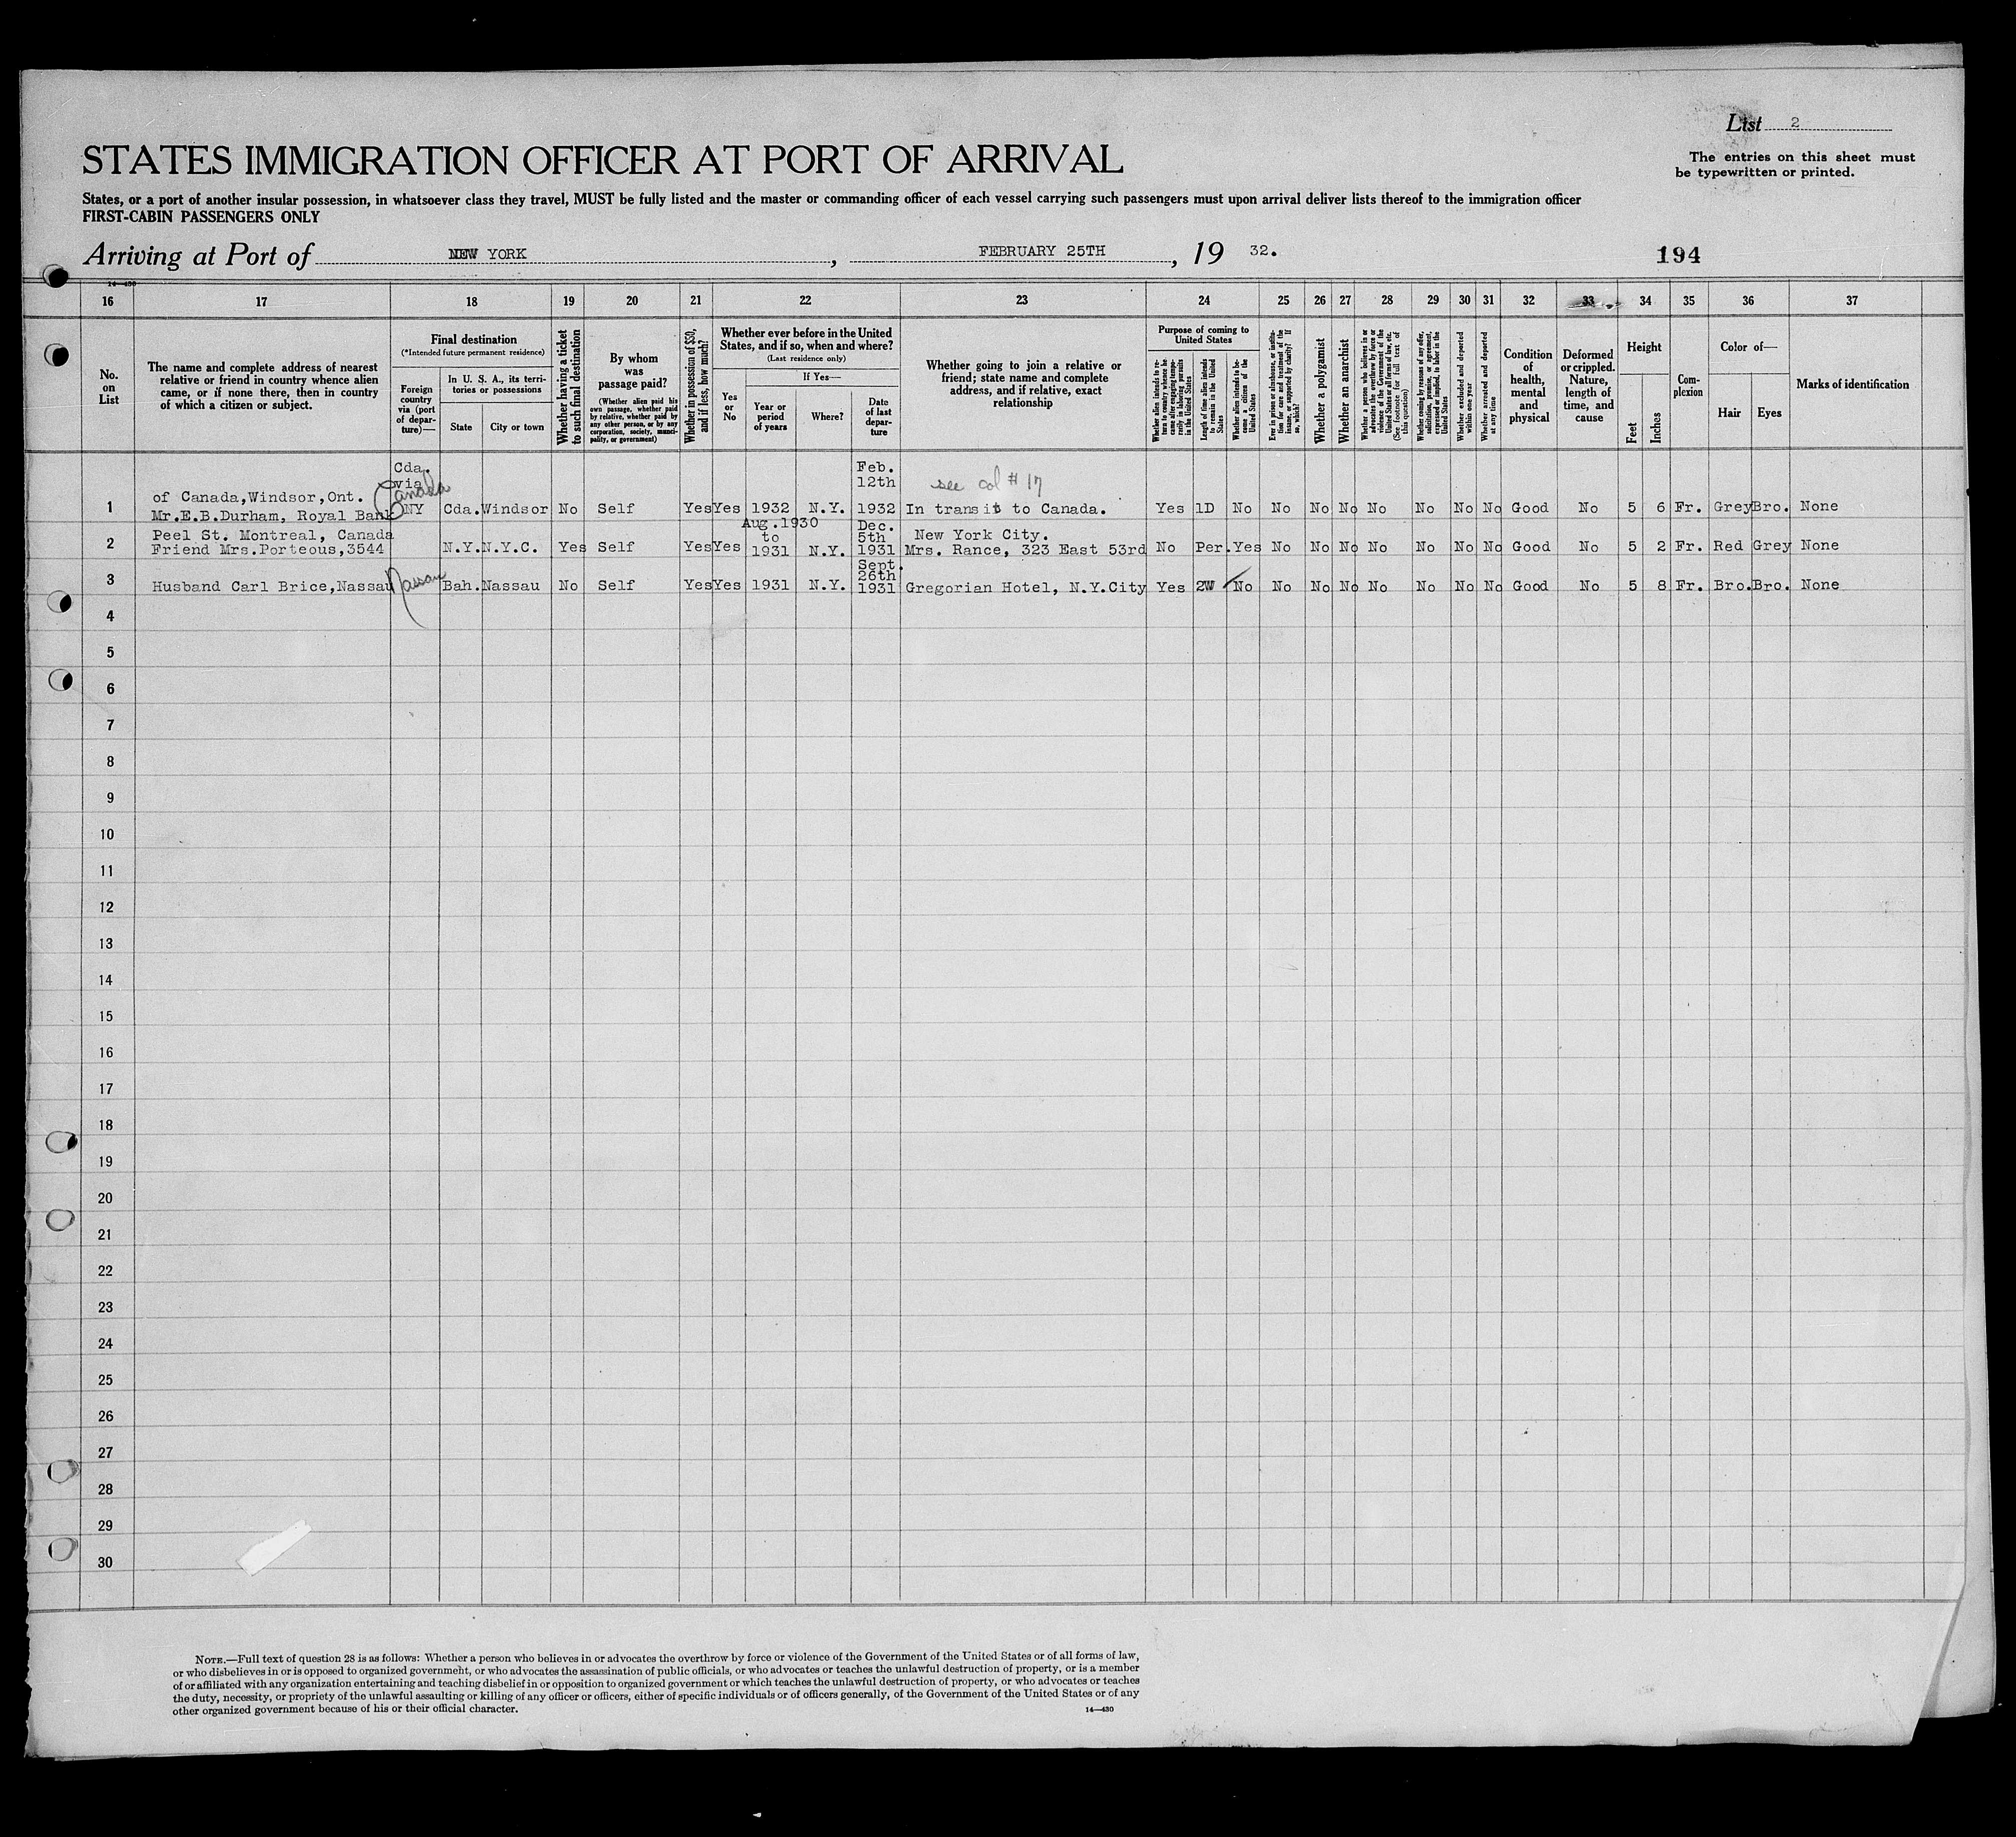 List 2
The entries on this sheet must
be typewritten or printed.
STATES IMMIGRATION OFFICER AT PORT OF ARRIVAL
States, or a port of another insular possession, in whatsoever class they travel, MUST be fully listed and the master or commanding officer of each vessel carrying such passengers must upon arrival deliver lists thereof to the immigration officer
FIRST-CABIN PASSENGERS ONLY
Arriving at Port of NEW YORK, FEBRUARY 25TH, 19 32. 194
14—430
16 17 18 19 20 21 22 23 24 25 26 27 28 29 30 31 32 33 34 35 36 37
No.
on
List
The name and complete address of nearest
relative or friend in country whence alien
came, or if none there, then in country
of which a citizen or subject.
Final destination
(*Intended future permanent residence)
Foreign
country
via (port
of depar-
ture)—
In U. S. A., its terri-
tories or possessions
State
City or town
Whether having a ticket
to such final destination
By whom
was
passage paid?
(Whether alien paid his
own passage, whether paid
by relative, whether paid by
any other person, or by any
corporation, society, munci-
pality, or government)
Whether in possession of $50,
and if less, how much?
Whether ever before in the United
States, and if so, when and where?
(Last residence only)
Yes
or
No
If Yes—
Year or
period
of years
Where?
Date
of last
depar-
ture
Whether going to join a relative or
friend; state name and complete
address, and if relative, exact
relationship
Purpose of coming to
United States
Whether alien intends to re-
turn to country whence he
came after engaging tempo-
rarily in laboring pursuits
in the United States
Length of time alien intends
to remain in the United
States
Whether alien intends to be-
come a citizen of the
United States
Ever in prison or almshouse, or institu-
tion for care and treatment of the
insane, or supported by charity? If
so, which?
Whether a polygamist
Whether an anarchist
Whether a person who believes in or
advocates the overthrow by force or
violence of the Government of the
United States or all forms of law, etc.
(See footnote for full text of
this question)
Whether coming by reasons of any offer,
solicitation, promise, or agreement,
expressed or implied, to labor in the
United States
Whether excluded and deported
within one year
Whether arrested and deported
at any time
Condition
of
health,
mental
and
physical
Deformed
or crippled.
Nature,
length of
time, and
cause
Height
Feet
Inches
Com-
plexion
Color of—
Hair
Eyes
Marks of identification
Cda.
via
Canada
Feb.
12th
see col # 17
of Canada,Windsor,Ont.
1 Mr.E.B.Durham, Royal Bank NY Cda. Windsor No Self Yes Yes 1932 N.Y. 1932 In transit to Canada. Yes 1D No No No No No No No No Good No 5 6 Fr. Grey Bro. None
Aug.1930 Dec.
Peel St. Montreal, Canada to 5th New York City.
2 Friend Mrs.Porteous,3544 N.Y. N.Y.C. Yes Self Yes Yes 1931 N.Y. 1931 Mrs. Rance, 323 East 53rd No Per. Yes No No No No No No No Good No 5 2 Fr. Red Grey None
Sept.
26th
3 Husband Carl Brice,Nassau Nassau Bah. Nassau No Self Yes Yes 1931 N.Y. 1931 Gregorian Hotel, N.Y.City Yes 2W No No No No No No No No Good No 5 8 Fr. Bro. Bro. None
4
5
6
7
8
9
10
11
12
13
14
15
16
17
18
19
20
21
22
23
24
25
26
27
28
29
30
NOTE.—Full text of question 28 is as follows: Whether a person who believes in or advocates the overthrow by force or violence of the Government of the United States or of all forms of law,
or who disbelieves in or is opposed to organized government, or who advocates the assassination of public officials, or who advocates or teaches the unlawful destruction of property, or is a member
of or affiliated with any organization entertaining and teaching disbelief in or opposition to organized government or which teaches the unlawful destruction of property, or who advocates or teaches
the duty, necessity, or propriety of the unlawful assaulting or killing of any officer or officers, either of specific individuals or of officers generally, of the Government of the United States or of any
other organized government because of his or their official character.
14—430